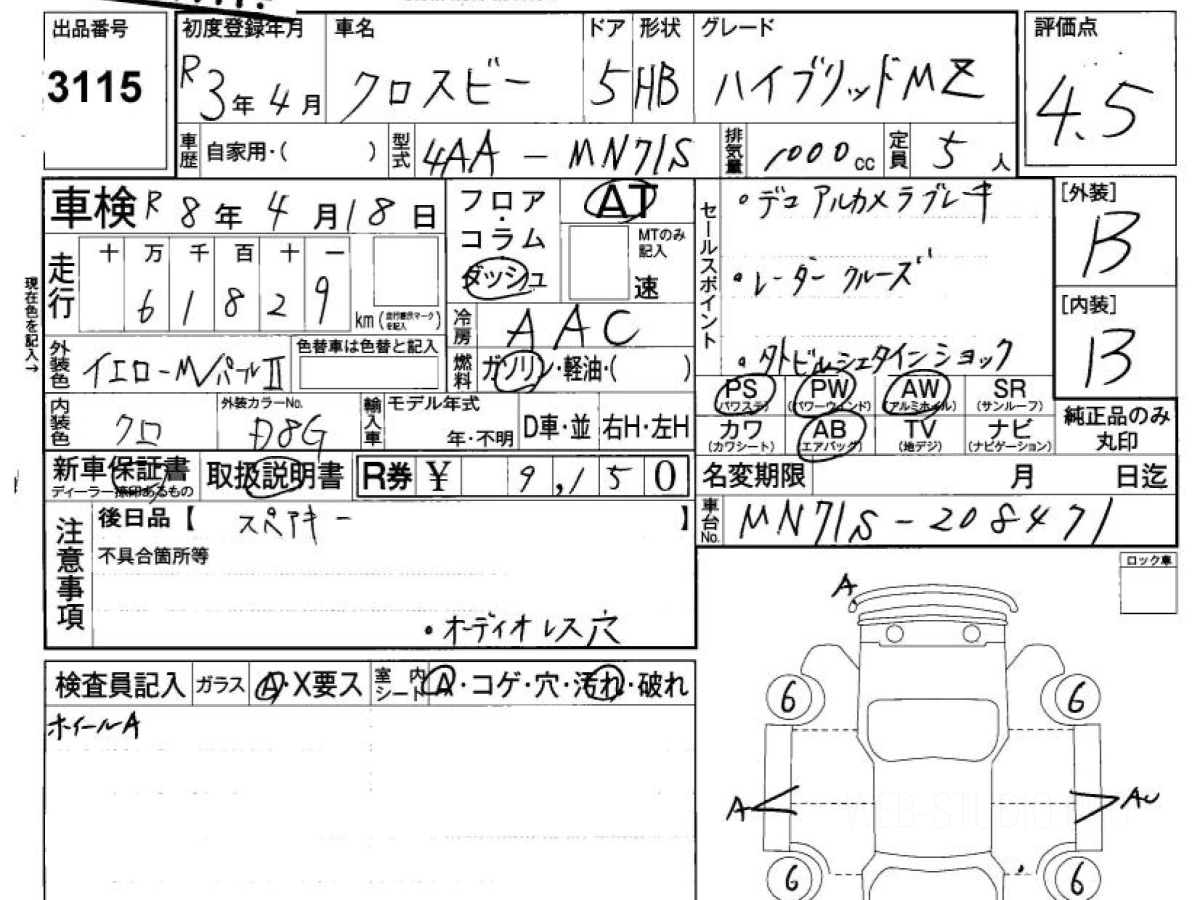 出品番号 初度登録年月 車名 ドア 形状 グレード 評価点
3115 R3年4月 クロスビー 5 HB ハイブリッドMZ 4.5
車歴 自家用・( ) 型式 4AA-MN71S 排気量 1000cc 定員 5人
車検 R8年4月18日 フロア・コラム ダッシュ AT MTのみ記入 速
セールスポイント ・デュアルカメラブレーキ
・レーダークルーズ
・タトビルシェタインショック
[外装] B
[内装] B
走行 十 万 千 百 十 一
6 1 8 2 9 km
現在色を記入→
冷房 AAC
外装色 イエローMパールII 色替車は色替と記入
燃料 ガソリン・軽油・( )
PS (パワステ) PW (パワーウインド) AW (アルミホイル) SR (サンルーフ)
カワ (カワシート) AB (エアバッグ) TV (地デジ) ナビ (ナビゲーション)
純正品のみ丸印
内装色 クロ 外装カラーNo. D8G 輸入車 モデル年式 年・不明 D車・並 右H・左H
新車保証書 取扱説明書 R券 ¥ 9,150
名変期限 月 日迄
車台No. MN71S-208471
注意事項 後日品【 スペアキー 】
不具合箇所等
・オーディオレス穴
ロック車
検査員記入 ガラス A・X要ス 室内シート A・コゲ・穴・汚れ・破れ
ホイールA
A
6 6
A AU
WEB-STUDIO.PRO
6 6